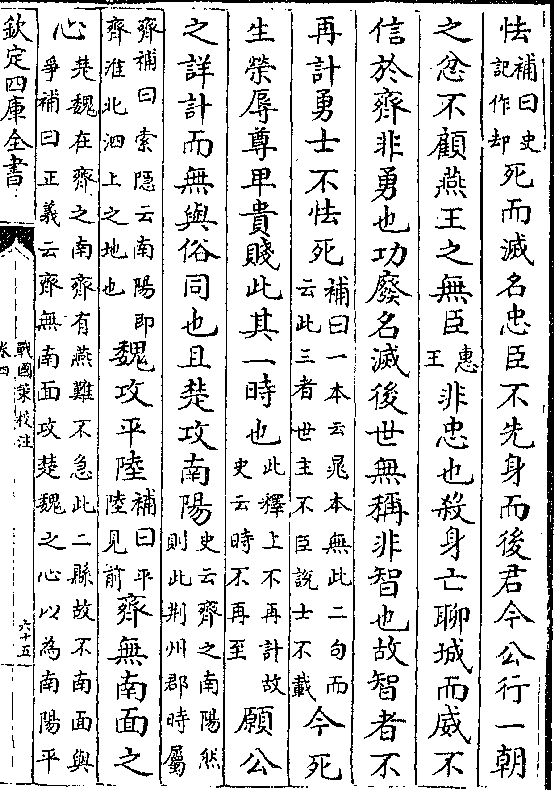 怯補曰史記作却死而滅名忠臣不先身而後君今公行一朝
之忿不顧燕王之無臣惠王非忠也殺身亡聊城而威不
信於齊非勇也功廢名滅後世無稱非智也故智者不
再計勇士不怯死補曰一本云晁本無此二句而云此三者世主不臣說士不載今死
生榮辱尊卑貴賤此其一時也此釋上不再計故史云時不再至願公
之詳計而無與俗同也且楚攻南陽史云齊之南陽然則此荆州郡時屬
齊補曰索隱云南陽即齊淮北泗上之地也魏攻平陸補曰平陸見前齊無南面之
心楚魏在齊之南齊有燕難不急此二縣故不南面與爭補曰正義云齊無南面攻楚魏之心以為南陽平
欽定四庫全書
戰國策校注
卷四
六十五